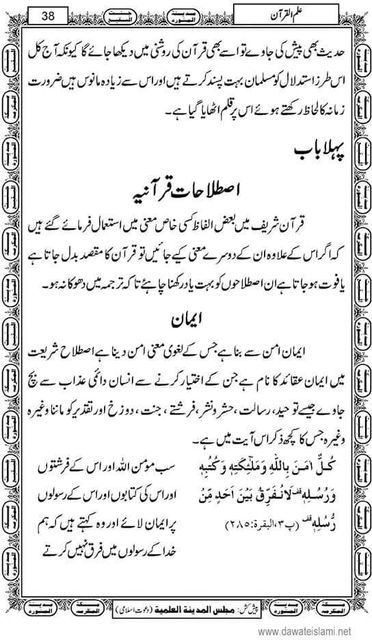 علم القرآن
38
حدیث بھی پیش کی جاوے تو اسے بھی قرآن کی روشنی میں دیکھا جائے گا کیونکہ آج کل
اس طرز استدلال کو مسلمان بہت پسند کرتے ہیں اور اس سے زیادہ مانوس ہیں ضرورت
زمانہ کا لحاظ رکھتے ہوئے اس پر قلم اٹھایا گیا ہے۔
پہلا باب
اصطلاحات قرآنیہ
قرآن شریف میں بعض الفاظ کسی خاص معنی میں استعمال فرمائے گئے ہیں
کہ اگر اس کے علاوہ ان کے دوسرے معنی کیے جائیں تو قرآن کا مقصد بدل جاتا ہے
یا فوت ہو جاتا ہے ان اصطلاحوں کو بہت یاد رکھنا چاہئے تاکہ ترجمہ میں دھوکا نہ ہو۔
ایمان
ایمان امن سے بنا ہے جس کے لغوی معنی امن دینا ہے اصطلاح شریعت
میں ایمان عقائد کا نام ہے جن کے اختیار کرنے سے انسان دائمی عذاب سے بچ
جاوے جیسے توحید، رسالت، حشر و نشر، فرشتے، جنت، دوزخ اور تقدیر کو ماننا وغیرہ
وغیرہ جس کا کچھ ذکر اس آیت میں ہے۔
كُلٌّ اٰمَنَ بِاللّٰهِ وَمَلٰٓئِكَتِهٖ وَكُتُبِهٖ
وَرُسُلِهٖ قف لَانُفَرِّقُ بَيْنَ اَحَدٍ مِّنْ
رُّسُلِهٖ قف (پ۳،البقرة:۲۸۵)
سب مؤمن اللہ اور اس کے فرشتوں
اور اس کی کتابوں اور اس کے رسولوں
پر ایمان لائے اور وہ کہتے ہیں کہ ہم
خدا کے رسولوں میں فرق نہیں کرتے
پیش کش: مجلس المدینة العلمیة (دعوت اسلامی)
www.dawateislami.net